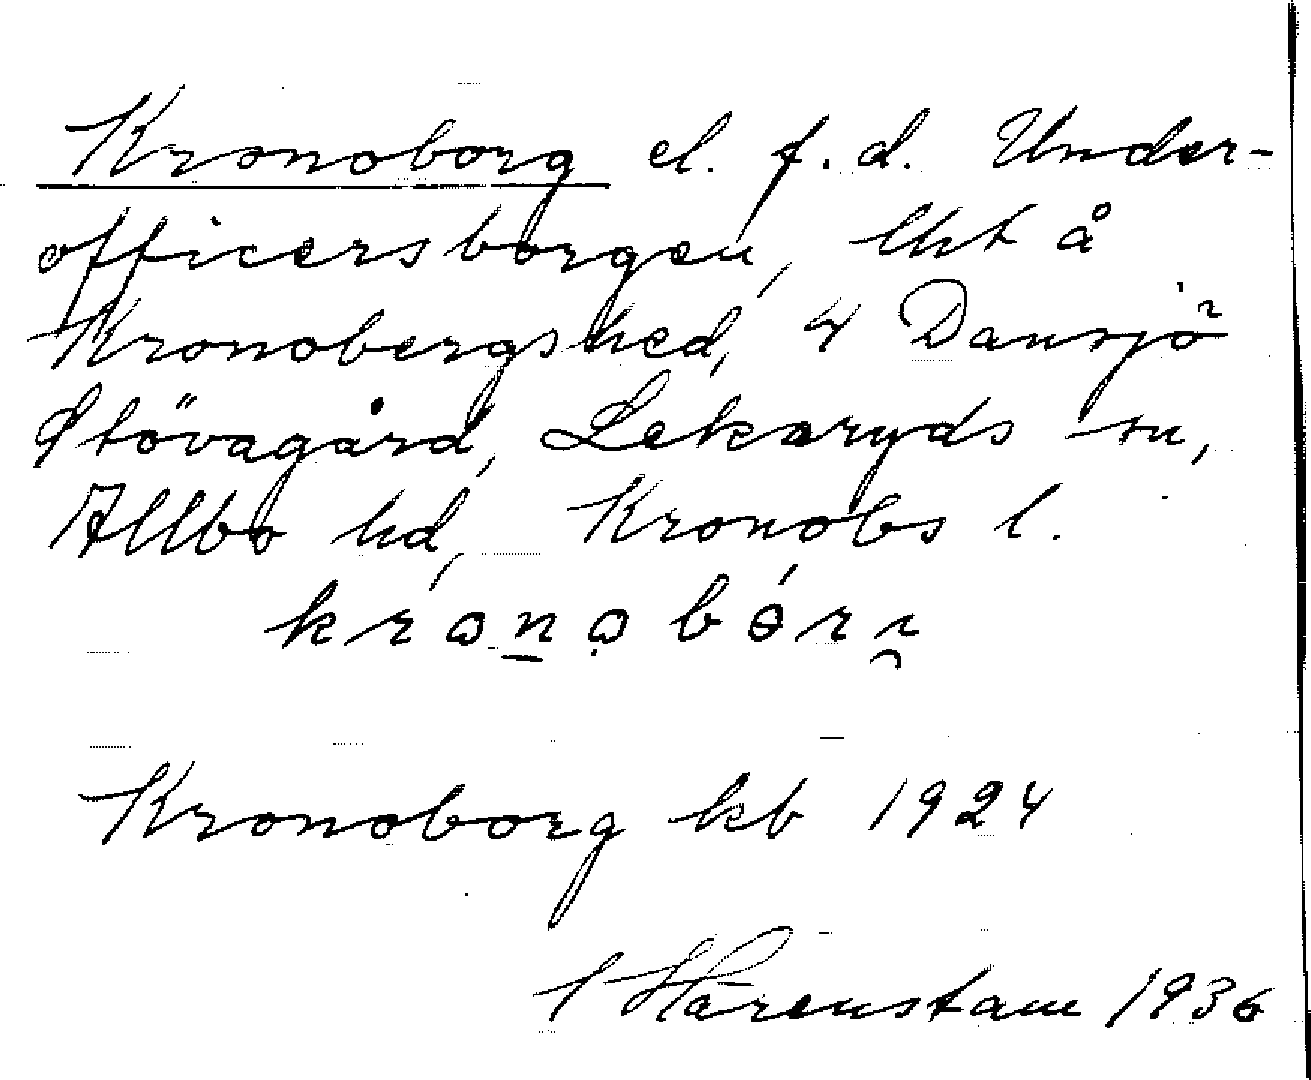 Kronoborg el. f.d. Under-
officersborgen, lht å
Kronobergshed, 4 Dansjö
Stövagård, Lekaryds sn,
Allbo hd, Kronobs l.
Kronoborg kb 1924
Härenstam 1936